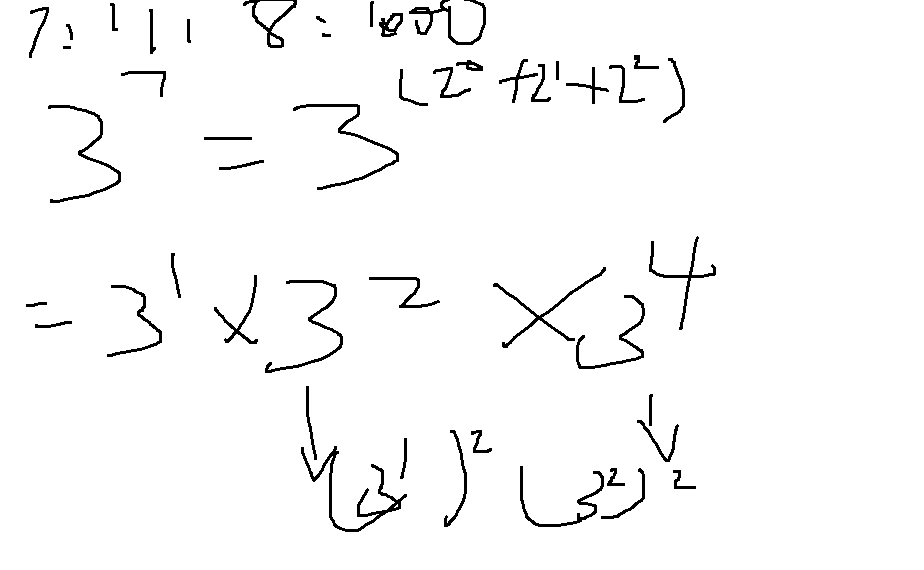 7: 111 8: 1000
3^7 = 3^(2^0 + 2^1 + 2^2)
= 3^1 × 3^2 × 3^4
(3^1)^2 (3^2)^2